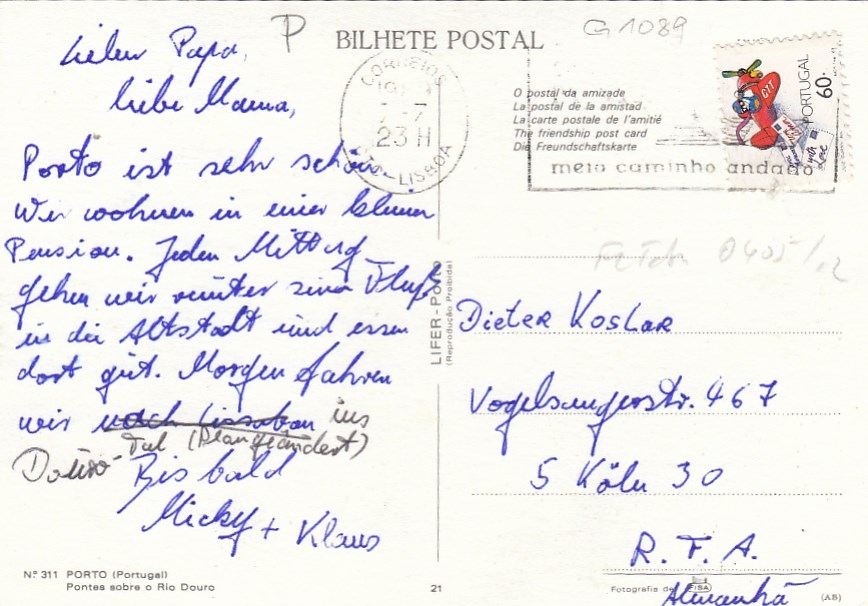 P
BILHETE POSTAL
G 1089
Lieber Papa,
liebe Mama,
Porto ist sehr schön.
Wir wohnen in einer kleinen
Pension. Jeden Mittag
gehen wir runter zum Fluß
in die Altstadt und essen
dort gut. Morgen fahren
wir nach Lissabon ins
Douro-Tal (Plan geändert)
Bis bald
Micky + Klaus
Nº 311 PORTO (Portugal)
Pontes sobre o Rio Douro
21
LIFER - PORTO
(Reprodução Proibida)
CORREIOS
23 H
LISBOA
O postal da amizade
La postal de la amistad
La carte postale de l'amitié
The friendship post card
Die Freundschaftskarte
meio caminho andado
CTT
PORTUGAL
60.
Dieter Koslar
Vogelsangerstr. 467
5 Köln 30
R. F. A.
Alemanhã
Fotografia de FISA
(AB)